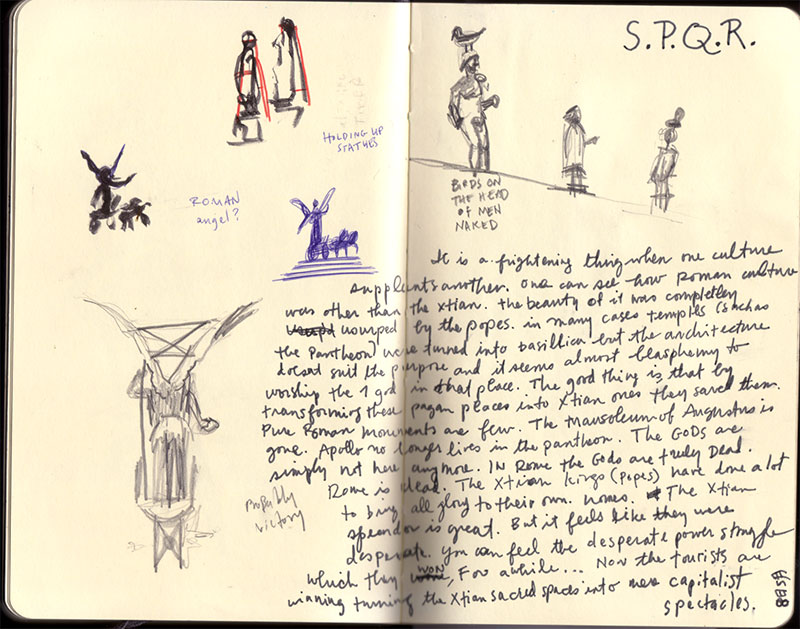 S.P.Q.R.
HOLDING UP
STATUES
ROMAN
angel?
BIRDS ON
THE HEAD
OF MEN
NAKED
It is a frightening thing when one culture
supplants another. One can see how Roman culture
was other than the Xtian. the beauty of it was completley
usurped by the popes. in many cases temples (such as
the Pantheon) were turned into basillica but the architecture
doesnt suit the purpose and it seems almost blasphemy to
worship the 1 god in that place. The good thing is that by
transforming these pagan places into Xtian ones they saved them.
Pure Roman monuments are few. The mausoleum of Augustus is
gone. Apollo no longer lives in the pantheon. The GODS are
simply not here anymore. IN Rome the Gods are truly Dead.
Rome is dead. The Xtian kings (popes) have done a lot
to bring all glory to their own. names. The Xtian
splendor is great. But it feels like they were
desperate. you can feel the desperate power struggle
which they won, For awhile... Now the tourists are
winning turning the Xtian sacred spaces into mere capitalist
spectacles.
probably
victory